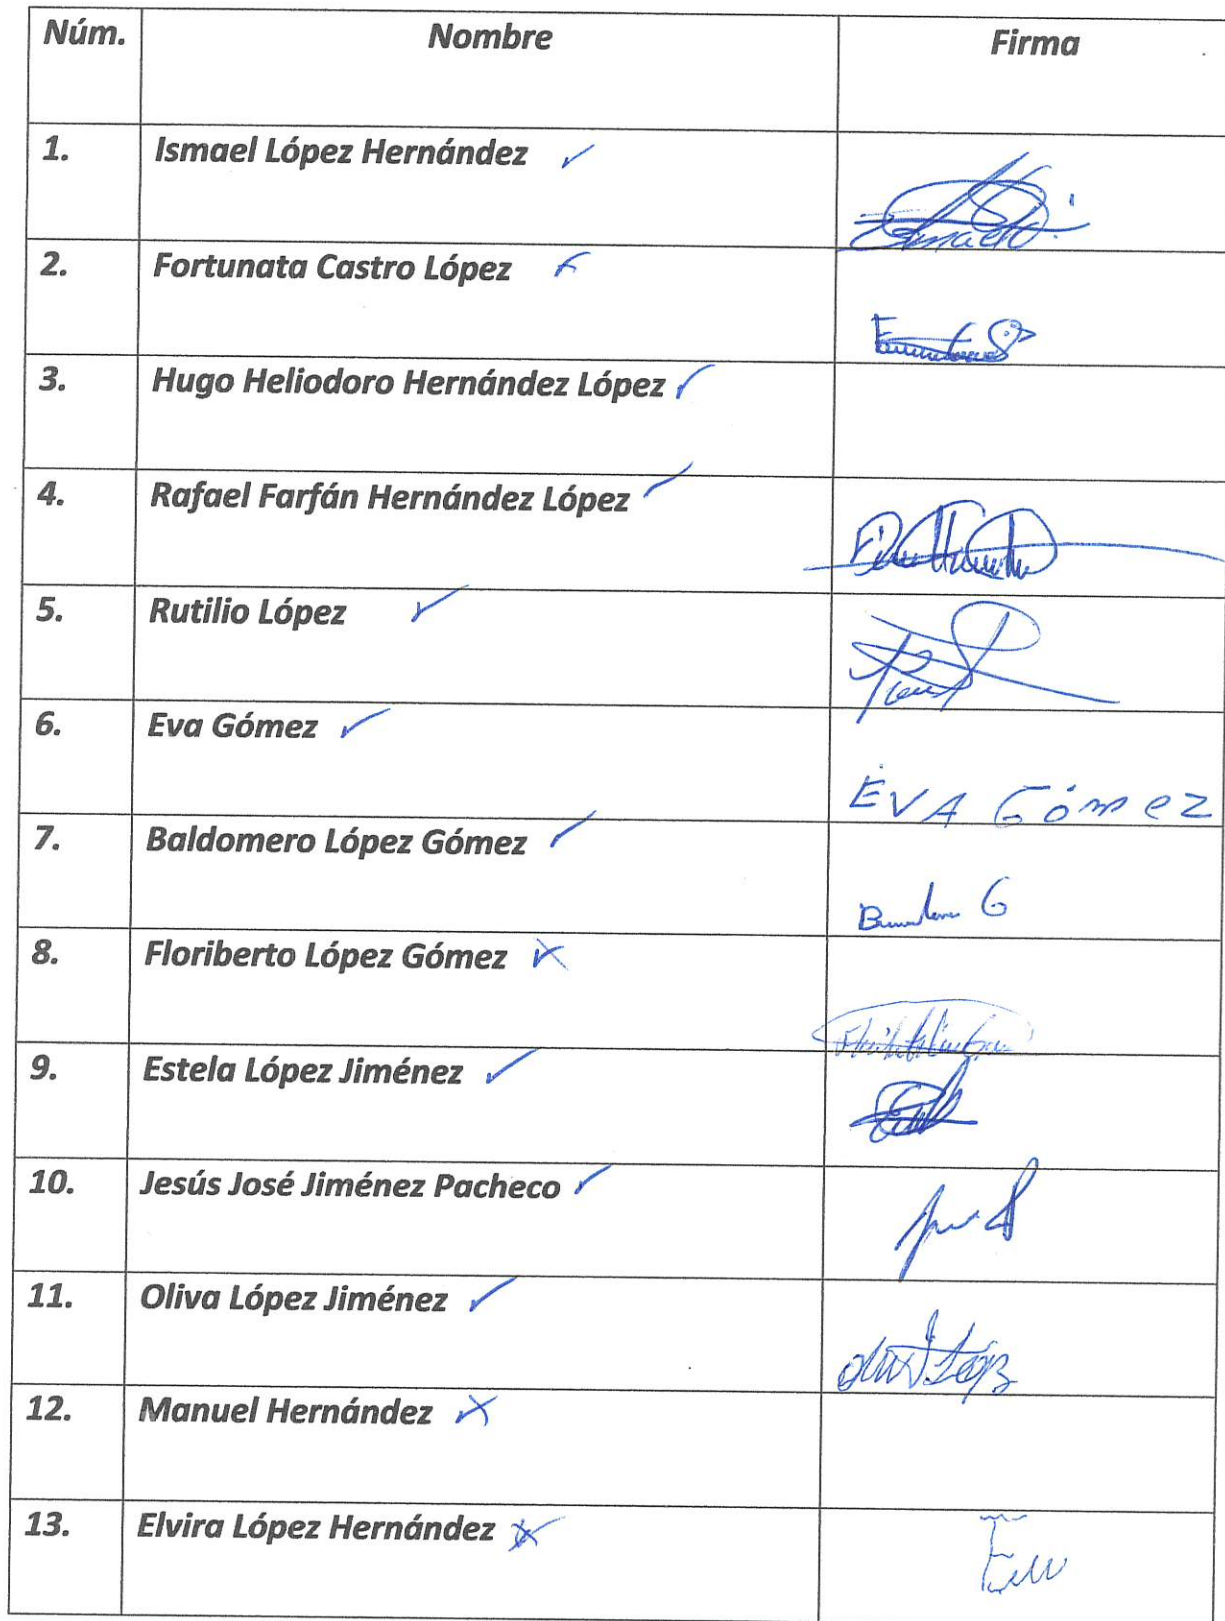 Núm. Nombre Firma
1. Ismael López Hernández
2. Fortunata Castro López
3. Hugo Heliodoro Hernández López
4. Rafael Farfán Hernández López
5. Rutilio López
6. Eva Gómez
EVA Gómez
7. Baldomero López Gómez
8. Floriberto López Gómez
9. Estela López Jiménez
10. Jesús José Jiménez Pacheco
11. Oliva López Jiménez
12. Manuel Hernández
13. Elvira López Hernández